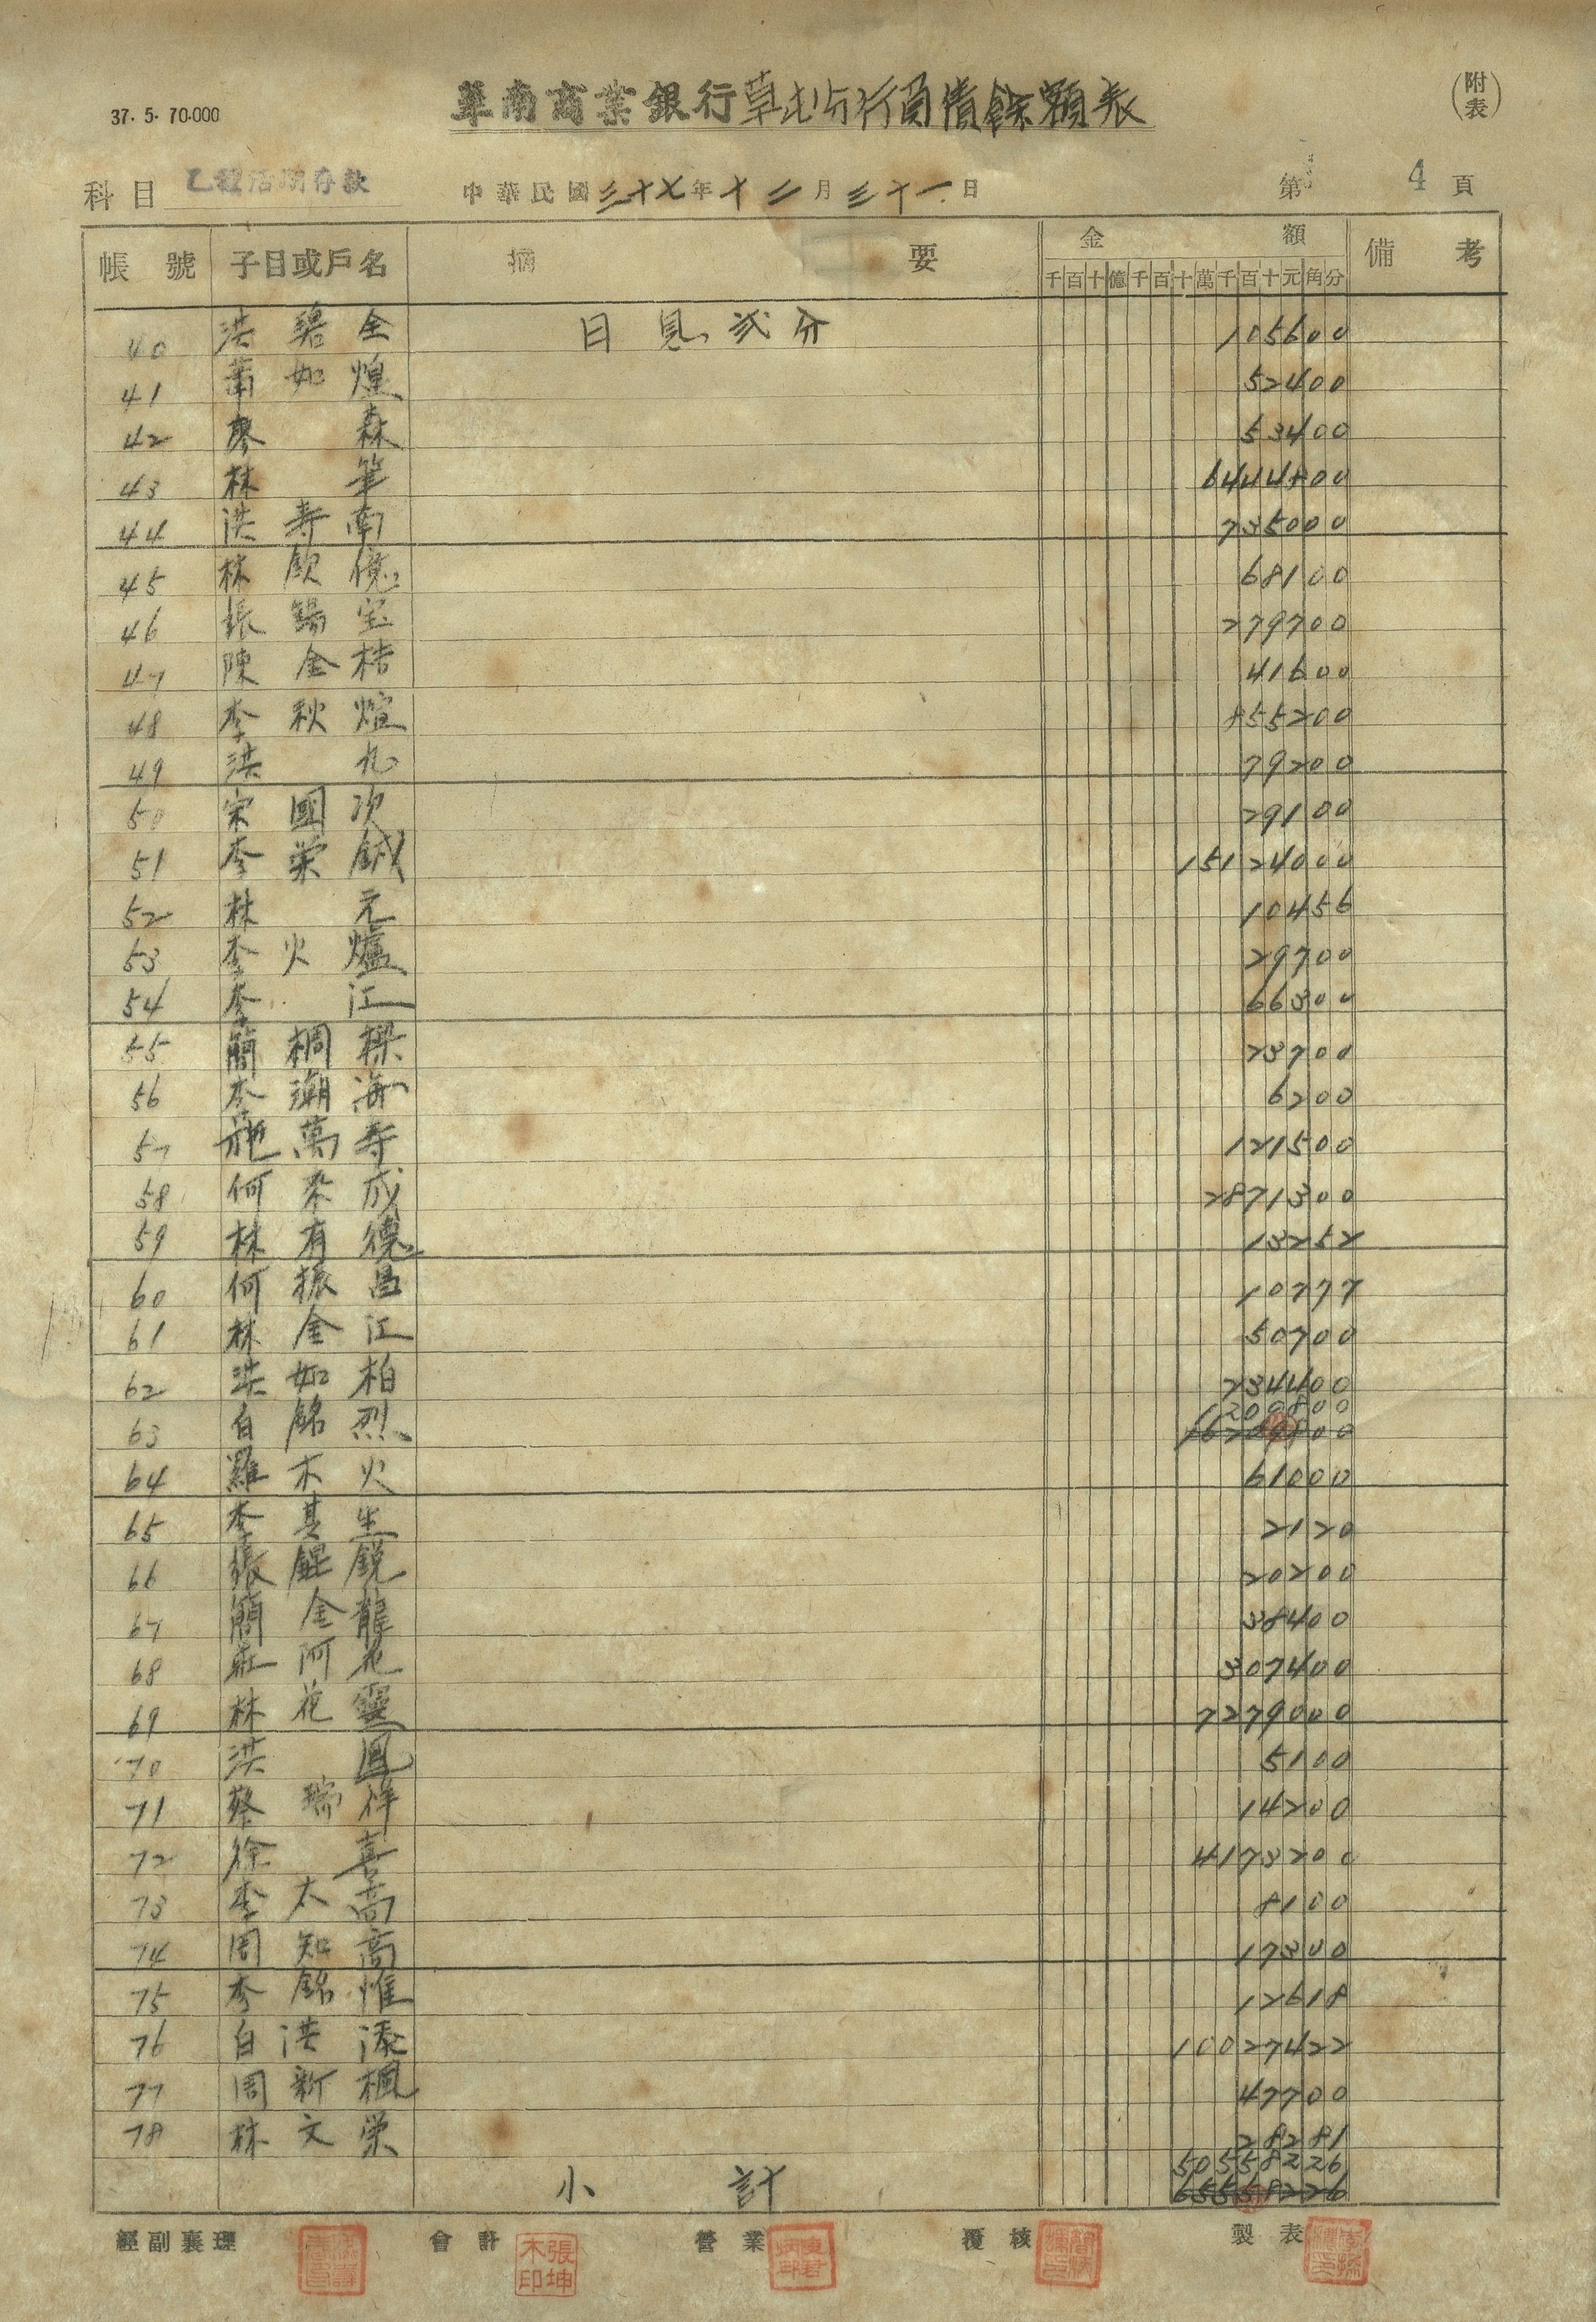 37. 5. 70.000
華南商業銀行草屯分行負債餘額表
(附表)
科目 乙種活期存款 中華民國三十七年十二月三十一日 第 4 頁
帳號 子目或戶名 摘要 金額 備考
千百十億千百十萬千百十元角分
40 洪碧全 日息弍分 105600
41 蕭如煌 52400
42 廖森 53400
43 林筆 6444800
44 洪寿南 735000
45 林欽億 68100
46 張錫宝 279700
47 陳金桔 41600
48 李秋煊 855200
49 洪九 79200
50 宋國次 29100
51 李栄鋮 15124000
52 林元 10456
53 李火爐 29700
54 李江 66300
55 簡桐樑 23700
56 李潮海 6200
57 施萬寿 121500
58 何来成 2871300
59 林有德 13252
60 何振昌 10777
61 林金江 50700
62 洪如柏 234400
1209800
63 白銘烈 16209800
64 羅木火 61000
65 李其生 2120
66 張錕銳 20200
67 簡金龍 38400
68 莊阿花 307400
69 林花靈 7279000
70 洪鳳 5100
71 蔡瑞祥 14200
72 徐喜 4173200
73 李太高 8100
74 周知高 17300
75 李銘惟 12618
76 白洪添 10027422
77 周新楓 47700
78 林文栄 28281
50558226
小計 65558226
經副襄理 會計 營業 覆核 製表
張坤木印